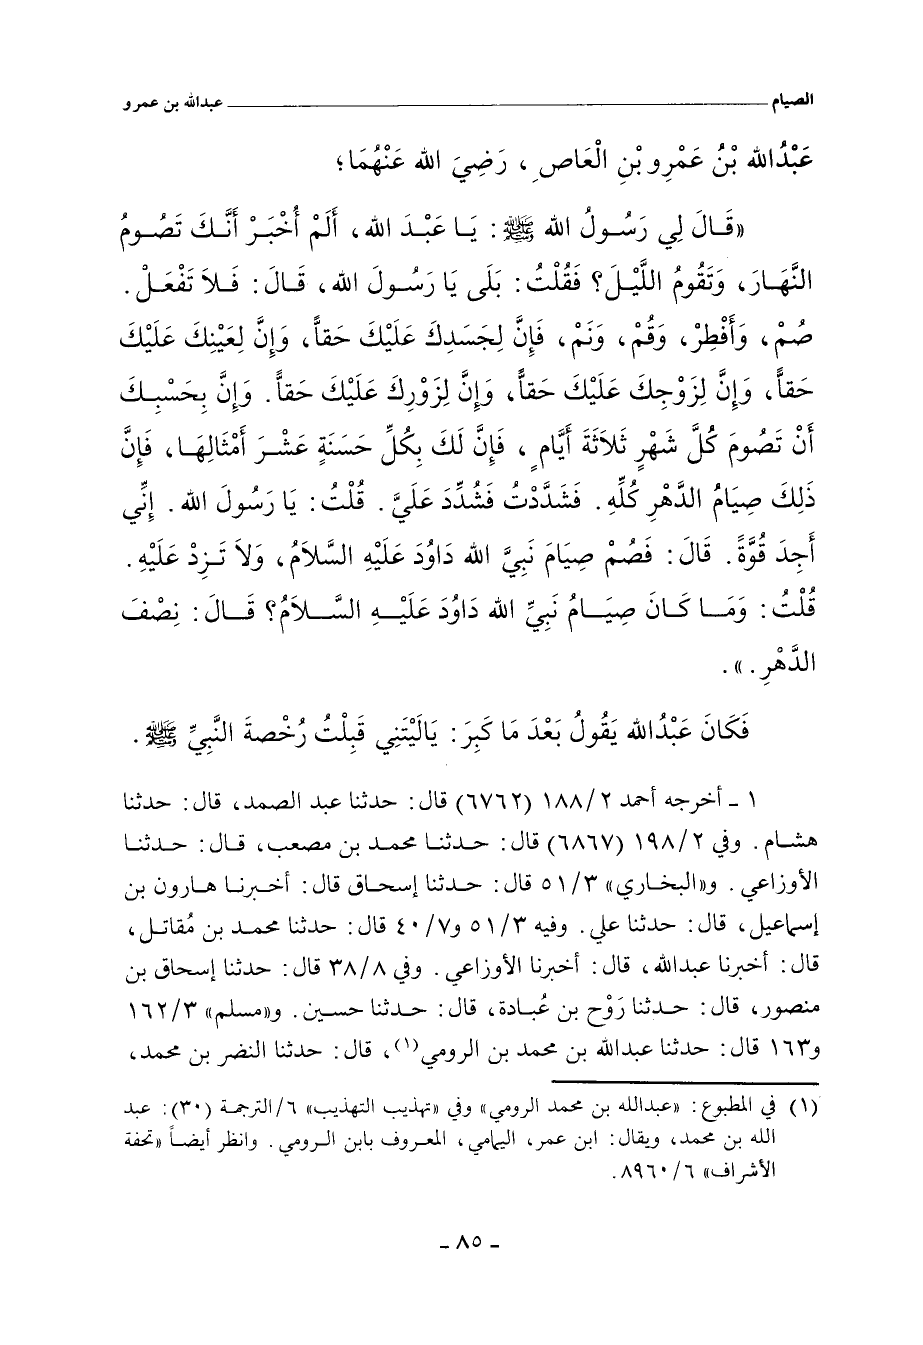 الصيام ــــــــــــــــــــــــــــــــــــــــــــــــــــــــــــــــ عبدالله بن عمرو
عَبْدُالله بْنُ عَمْرِو بْنِ الْعَاصِ ، رَضِيَ الله عَنْهُمَا؛
«قَالَ لِي رَسُولُ الله ﷺ: يَا عَبْدَ الله، أَلَمْ أُخْبَرْ أَنَّكَ تَصُومُ
النَّهَارَ، وَتَقُومُ اللَّيْلَ؟ فَقُلْتُ: بَلَى يَا رَسُولَ الله، قَالَ: فَلاَ تَفْعَلْ.
صُمْ، وَأَفْطِرْ، وَقُمْ، وَنَمْ، فَإِنَّ لِجَسَدِكَ عَلَيْكَ حَقاًّ، وَإِنَّ لِعَيْنِكَ عَلَيْكَ
حَقاًّ، وَإِنَّ لِزَوْجِكَ عَلَيْكَ حَقاًّ، وَإِنَّ لِزَوْرِكَ عَلَيْكَ حَقاًّ. وَإِنَّ بِحَسْبِكَ
أَنْ تَصُومَ كُلَّ شَهْرٍ ثَلاَثَةَ أَيَّامٍ ، فَإِنَّ لَكَ بِكُلِّ حَسَنَةٍ عَشْرَ أَمْثَالِهَا، فَإِنَّ
ذَلِكَ صِيَامُ الدَّهْرِ كُلِّهِ. فَشَدَّدْتُ فَشُدِّدَ عَلَيَّ. قُلْتُ: يَا رَسُولَ الله. إِنِّي
أَجِدَ قُوَّةً. قَالَ: فَصُمْ صِيَامَ نَبِيَّ الله دَاوُدَ عَلَيْهِ السَّلاَمُ، وَلاَ تَزِدْ عَلَيْهِ.
قُلْتُ: وَمَا كَانَ صِيَامُ نَبِيِّ الله دَاوُدَ عَلَيْهِ السَّلاَمُ؟ قَالَ: نِصْفَ
الدَّهْرِ.».
فَكَانَ عَبْدُالله يَقُولُ بَعْدَ مَا كَبِرَ: يَالَيْتَنِي قَبِلْتُ رُخْصةَ النَّبِيِّ ﷺ.
١ ـ أخرجه أحمد ١٨٨/٢ (٦٧٦٢) قال: حدثنا عبد الصمد، قال: حدثنا
هشام. وفي ١٩٨/٢ (٦٨٦٧) قال: حدثنا محمد بن مصعب، قال: حدثنا
الأوزاعي. و«البخاري» ٥١/٣ قال: حدثنا إسحاق قال: أخبرنا هارون بن
إسماعيل، قال: حدثنا علي. وفيه ٥١/٣ و٤٠/٧ قال: حدثنا محمد بن مُقاتل،
قال: أخبرنا عبدالله، قال: أخبرنا الأوزاعي. وفي ٣٨/٨ قال: حدثنا إسحاق بن
منصور، قال: حدثنا رَوْح بن عُبادة، قال: حدثنا حسين. و«مسلم» ١٦٢/٣
و١٦٣ قال: حدثنا عبدالله بن محمد بن الرومي(١)، قال: حدثنا النضر بن محمد،
(١) في المطبوع: «عبدالله بن محمد الرومي» وفي «تهذيب التهذيب» ٦/الترجمة (٣٠): عبد
الله بن محمد، ويقال: ابن عمر، اليمامي، المعروف بابن الرومي. وانظر أيضاً «تحفة
الأشراف» ٨٩٦٠/٦.
ـ ٨٥ ـ